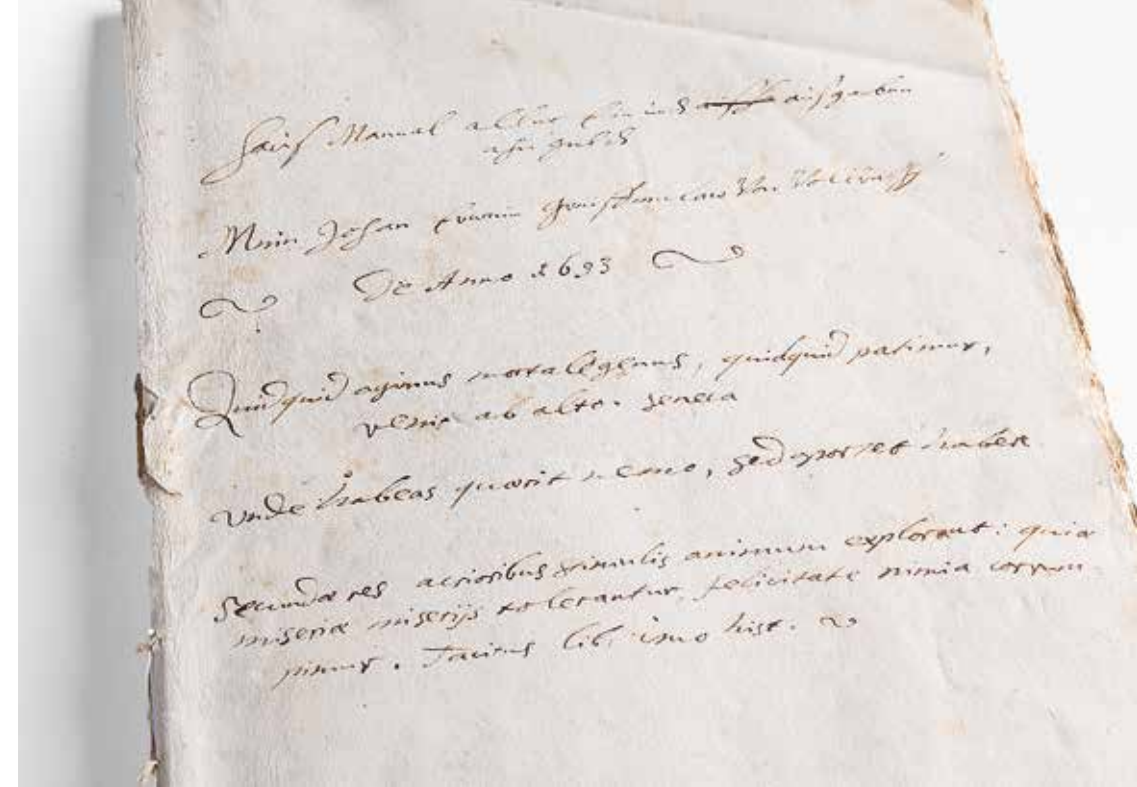 Hauß Manual aller Ein und außgaben
Mein Johan Erwein Greiffenclaw Von Vollraths
De Anno 1693
Quidquid agimus mortale genus, quidquid patimur,
venit ab alto. Seneca
unde habeas quærit nemo, sed oportet habere
Secundæ res acrioribus stimulis animum explorant: quia
miseriæ miserijs tolerantur, felicitate nimia corrum-
pimur. Tacitus lib. imo hist.